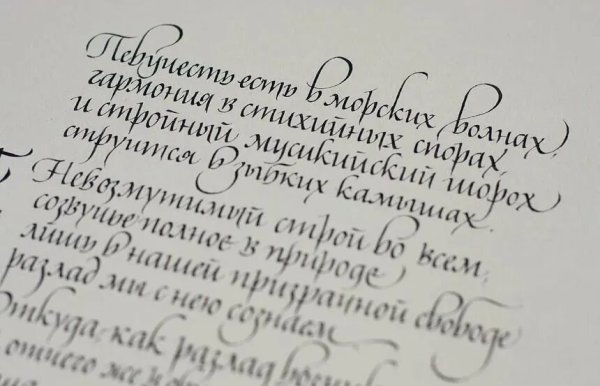 Певучесть есть в морских волнах,
гармония в стихийных спорах,
и стройный мусикийский шорох
струится в зыбких камышах.
Невозмутимый строй во всем,
созвучье полное в природе
лишь в нашей призрачной свободе
разлад мы с нею сознаем
Откуда, как разлад
отчего же